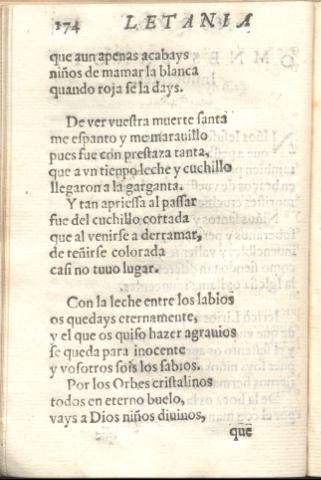 174 LETANIA
que aun apenas acabays
niños de mamar la blanca
quando roja se la days.
De ver vuestra muerte santa
me espanto y me marauillo
pues fue con prestaza tanta,
que a vn tiempo leche y cuchillo
llegaron a la garganta.
Y tan apriessa al passar
fue del cuchillo cortada
que al venirse a derramar,
de teñirse colorada
casi no tuuo lugar.
Con la leche entre los labios
os quedays eternamente,
y el que os quiso hazer agrauios
se queda para inocente
y vosotros sois los sabios.
Por los Orbes cristalinos
todos en eterno buelo,
vays a Dios niños diuinos,
que